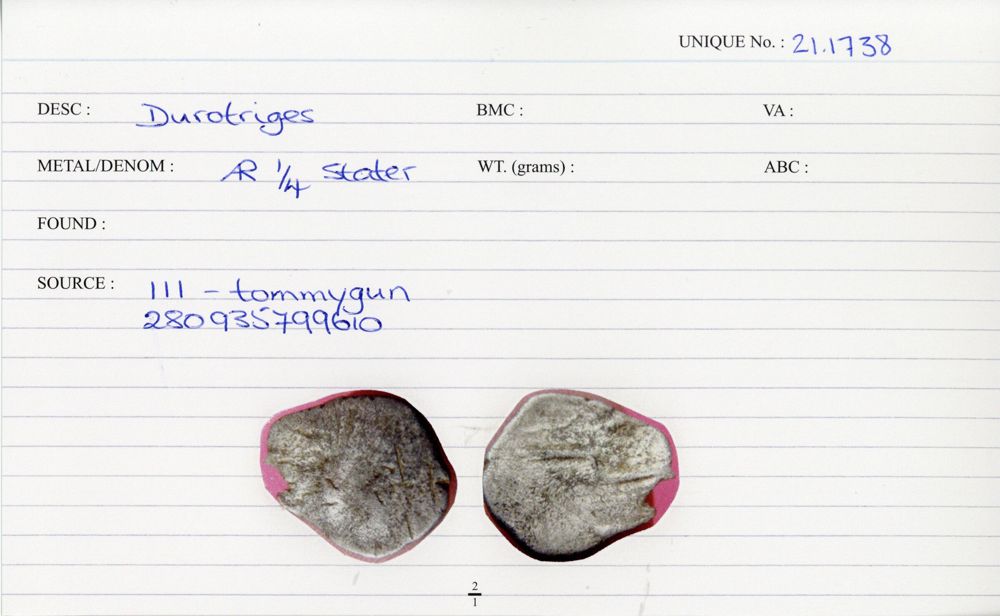 UNIQUE No. : 21.1738
DESC : Durotriges BMC : VA :
METAL/DENOM : AR 1/4 Stater WT. (grams) : ABC :
FOUND :
SOURCE : 111 - tommygun
280935799610
2
1